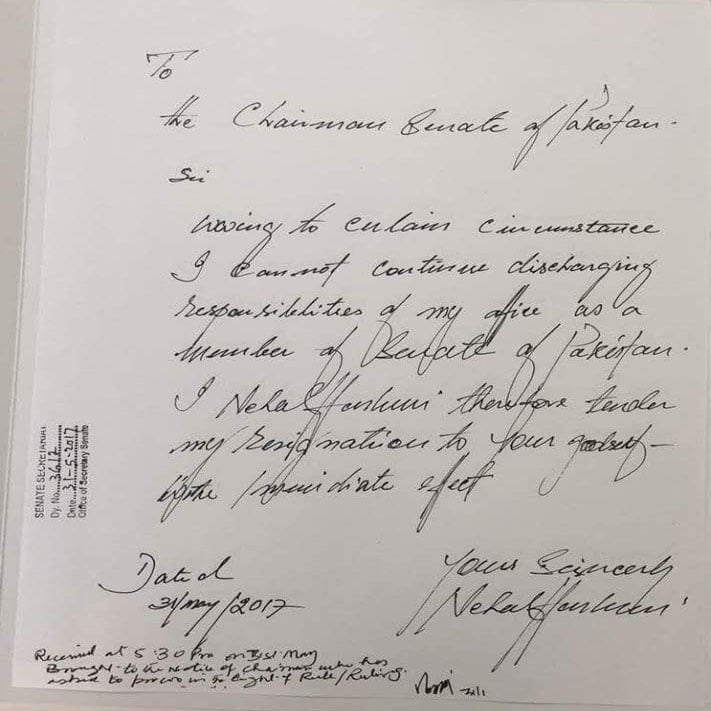 To
the Chairman Senate of Pakistan.
Sir
Owing to certain circumstance
I cannot continue discharging
responsibilities of my office as a
member of Senate of Pakistan.
I Nehal Hashmi therefore tender
my resignation to your goodself
with immediate effect
Dated
31/may/2017
Yours Sincerly
Nehal Hashmi
SENATE SECRETARIAT
Dy. No. 3612
Date 31-5-2017
Office of Secretary Senate
Received at 5:30 Pm on 31st May
Brought to the notice of chairman who has
asked to process in the light of Rule/Ruling.